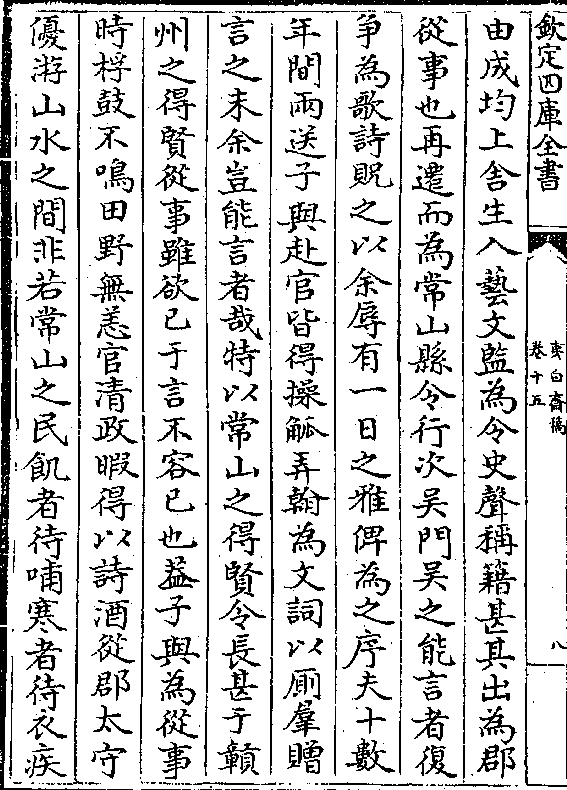 欽定四庫全書
夷白齋稿
卷十五
八
由成均上舎生入藝文監為令史聲稱籍甚其出為郡
從事也再遷而為常山縣令行次吳門吳之能言者復
爭為歌詩贶之以余辱有一日之雅俾為之序夫十數
年間兩送子與赴官皆得操觚弄翰為文詞以厠羣贈
言之末余豈能言者哉特以常山之得賢令長甚于贛
州之得賢從事雖欲已于言不容已也葢子與為從事
時桴鼓不鳴田野無恙官清政暇得以詩酒從郡太守
優游山水之間非若常山之民飢者待哺寒者待衣疾